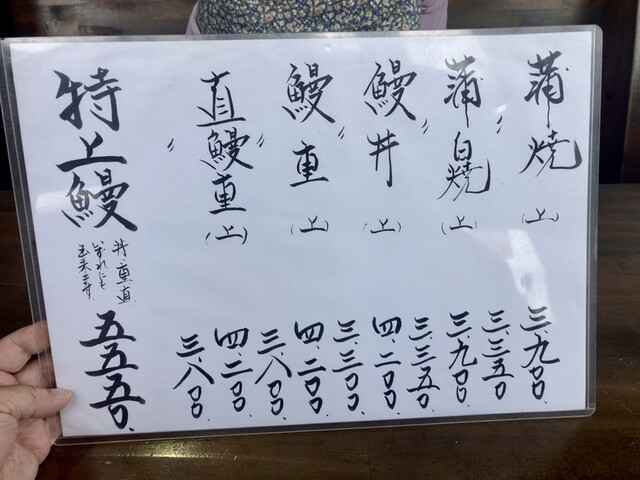 蒲焼(上) 三、九〇〇
〃 三、三五〇
蒲白焼(上) 三、九〇〇
〃 三、三五〇
鰻丼(上) 四、二〇〇
〃 三、三〇〇
鰻重(上) 四、二〇〇
〃 三、八〇〇
直鰻重(上) 四、二〇〇
〃 三、八〇〇
特上鰻 五五五〇
丼、重、直、
いずれにも